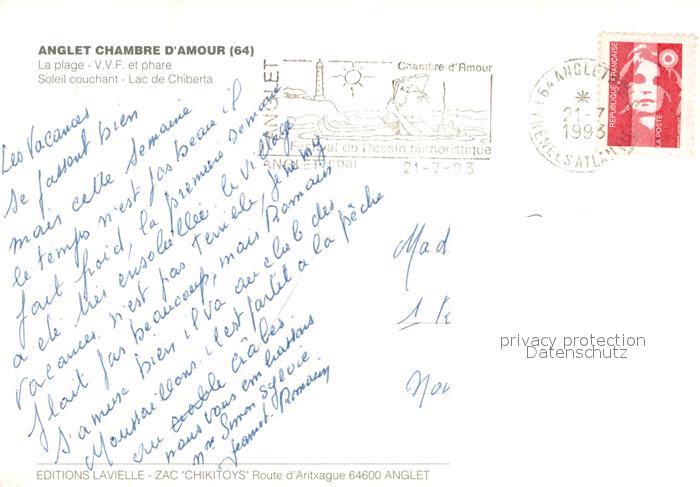 ANGLET CHAMBRE D'AMOUR (64)
La plage - V.V.F. et phare
Soleil couchant - Lac de Chiberta
ANGLET
Chambre d'Amour
Festival du Dessin humoristique
ANGLET Ppal
21-7-93
64 ANGLET
21-7
1993
REPUBLIQUE FRANÇAISE
LA POSTE
Les Vacances
se passent bien
mais cette semaine
le temps n'est pas beau il
fait froid, la première semaine
a été très ensoleillée. le village
Vacances n'est pas terrible, je m'y
plait pas beaucoup, mais Romain
s'amuse bien il va au club des
Moussaillons. il est partit a la pêche
au crabes.
nous vous embrassons
Mme Simon Sylvie
Romain
Mad
1 R
Nou
privacy protection
Datenschutz
EDITIONS LAVIELLE - ZAC "CHIKITOYS" Route d'Aritxague 64600 ANGLET